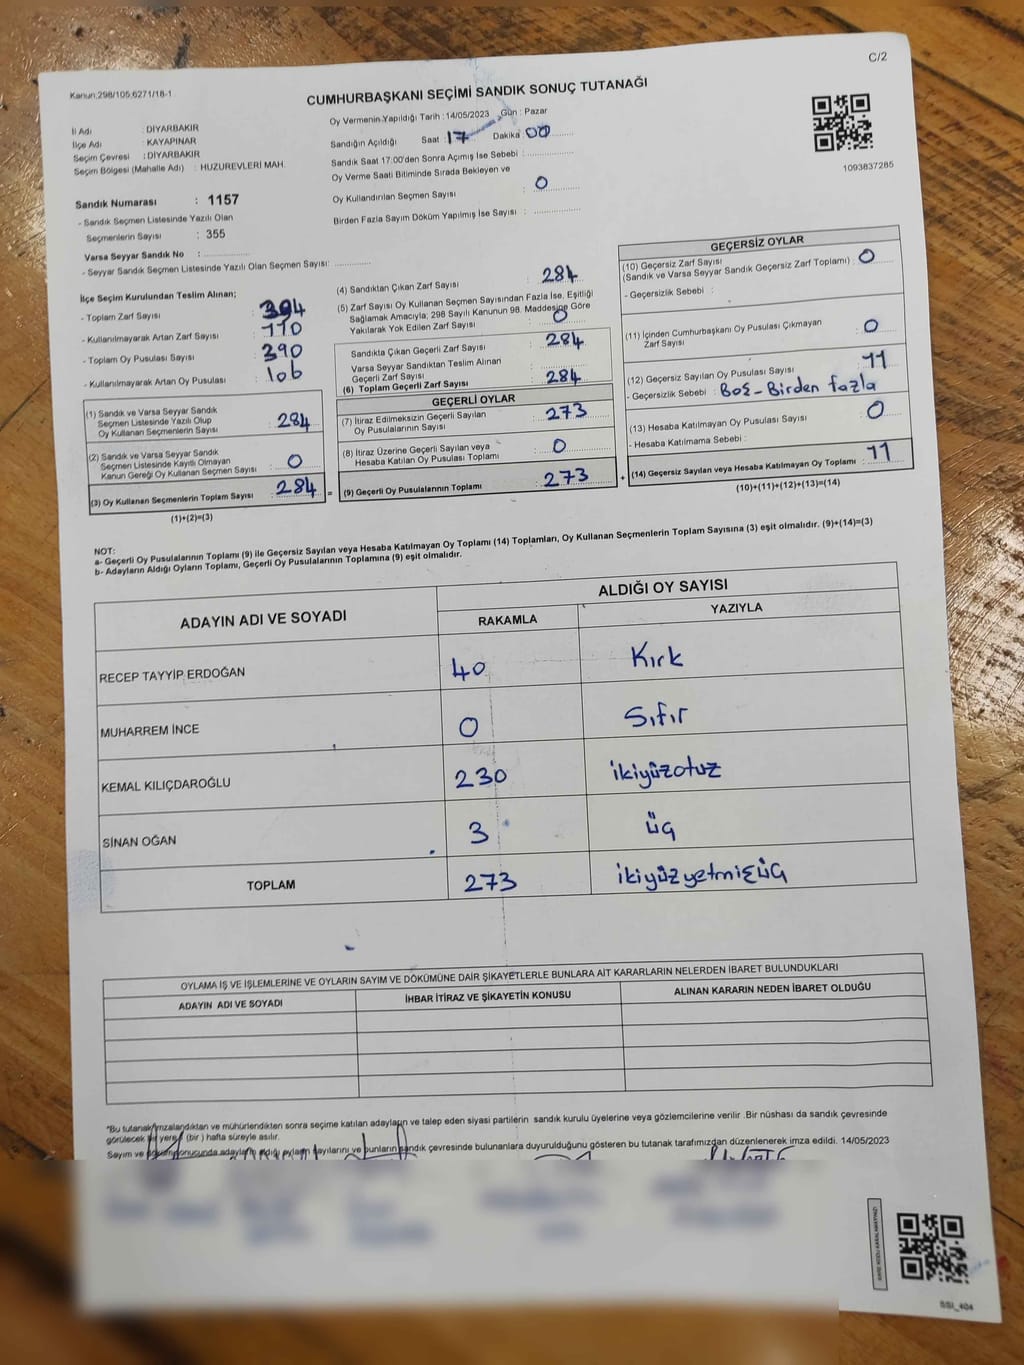 C/2
Kanun;298/105,6271/18-1
CUMHURBAŞKANI SEÇİMİ SANDIK SONUÇ TUTANAĞI
İl Adı : DİYARBAKIR
İlçe Adı : KAYAPINAR
Seçim Çevresi : DİYARBAKIR
Seçim Bölgesi (Mahalle Adı) : HUZUREVLERİ MAH.
Oy Vermenin Yapıldığı Tarih : 14/05/2023 Gün : Pazar
Sandığın Açıldığı Saat : 17 Dakika 00
Sandık Saat 17:00'den Sonra Açımış İse Sebebi :
Oy Verme Saati Bitiminde Sırada Bekleyen ve
Oy Kullandırılan Seçmen Sayısı : 0
Birden Fazla Sayım Döküm Yapılmış İse Sayısı :
1093837285
Sandık Numarası : 1157
- Sandık Seçmen Listesinde Yazılı Olan
Seçmenlerin Sayısı : 355
Varsa Seyyar Sandık No :
- Seyyar Sandık Seçmen Listesinde Yazılı Olan Seçmen Sayısı:
İlçe Seçim Kurulundan Teslim Alınan;
- Toplam Zarf Sayısı : 394
- Kullanılmayarak Artan Zarf Sayısı : 110
- Toplam Oy Pusulası Sayısı : 390
- Kullanılmayarak Artan Oy Pusulası : 106
(1) Sandık ve Varsa Seyyar Sandık
Seçmen Listesinde Yazılı Olup
Oy Kullanan Seçmenlerin Sayısı : 284
(2) Sandık ve Varsa Seyyar Sandık
Seçmen Listesinde Kayıtlı Olmayan
Kanun Gereği Oy Kullanan Seçmen Sayısı : 0
(3) Oy Kullanan Seçmenlerin Toplam Sayısı : 284 =
(1)+(2)=(3)
(4) Sandıktan Çıkan Zarf Sayısı : 284
(5) Zarf Sayısı Oy Kullanan Seçmen Sayısından Fazla İse, Eşitliği
Sağlamak Amacıyla; 298 Sayılı Kanunun 98. Maddesine Göre
Yakılarak Yok Edilen Zarf Sayısı : 0
Sandıkta Çıkan Geçerli Zarf Sayısı : 284
Varsa Seyyar Sandıktan Teslim Alınan
Geçerli Zarf Sayısı :
(6) Toplam Geçerli Zarf Sayısı : 284
GEÇERLİ OYLAR
(7) İtiraz Edilmeksizin Geçerli Sayılan
Oy Pusulalarının Sayısı : 273
(8) İtiraz Üzerine Geçerli Sayılan veya
Hesaba Katılan Oy Pusulası Toplamı : 0
(9) Geçerli Oy Pusulalarının Toplamı : 273 +
GEÇERSİZ OYLAR
(10) Geçersiz Zarf Sayısı
(Sandık ve Varsa Seyyar Sandık Geçersiz Zarf Toplamı) : 0
- Geçersizlik Sebebi :
(11) İçinden Cumhurbaşkanı Oy Pusulası Çıkmayan
Zarf Sayısı : 0
(12) Geçersiz Sayılan Oy Pusulası Sayısı : 11
- Geçersizlik Sebebi : Boş - Birden fazla
(13) Hesaba Katılmayan Oy Pusulası Sayısı : 0
- Hesaba Katılmama Sebebi :
(14) Geçersiz Sayılan veya Hesaba Katılmayan Oy Toplamı : 11
(10)+(11)+(12)+(13)=(14)
NOT:
a- Geçerli Oy Pusulalarının Toplamı (9) ile Geçersiz Sayılan veya Hesaba Katılmayan Oy Toplamı (14) Toplamları, Oy Kullanan Seçmenlerin Toplam Sayısına (3) eşit olmalıdır. (9)+(14)=(3)
b- Adayların Aldığı Oyların Toplamı, Geçerli Oy Pusulalarının Toplamına (9) eşit olmalıdır.
ADAYIN ADI VE SOYADI
ALDIĞI OY SAYISI
RAKAMLA YAZIYLA
RECEP TAYYİP ERDOĞAN 40 Kırk
MUHARREM İNCE 0 Sıfır
KEMAL KILIÇDAROĞLU 230 ikiyüzotuz
SİNAN OĞAN 3 üç
TOPLAM 273 ikiyüzyetmişüç
OYLAMA İŞ VE İŞLEMLERİNE VE OYLARIN SAYIM VE DÖKÜMÜNE DAİR ŞİKAYETLERLE BUNLARA AİT KARARLARIN NELERDEN İBARET BULUNDUKLARI
ADAYIN ADI VE SOYADI İHBAR İTİRAZ VE ŞİKAYETİN KONUSU ALINAN KARARIN NEDEN İBARET OLDUĞU
*Bu tutanak imzalandıktan ve mühürlendikten sonra seçime katılan adayların ve talep eden siyasi partilerin sandık kurulu üyelerine veya gözlemcilerine verilir .Bir nüshası da sandık çevresinde
görülecek bir yere, (bir ) hafta süreyle asılır.
Sayım ve döküm sonucunda adayların aldığı oyların sayılarını ve bunların sandık çevresinde bulunanlara duyurulduğunu gösteren bu tutanak tarafımızdan düzenlenerek imza edildi. 14/05/2023
SSI_404